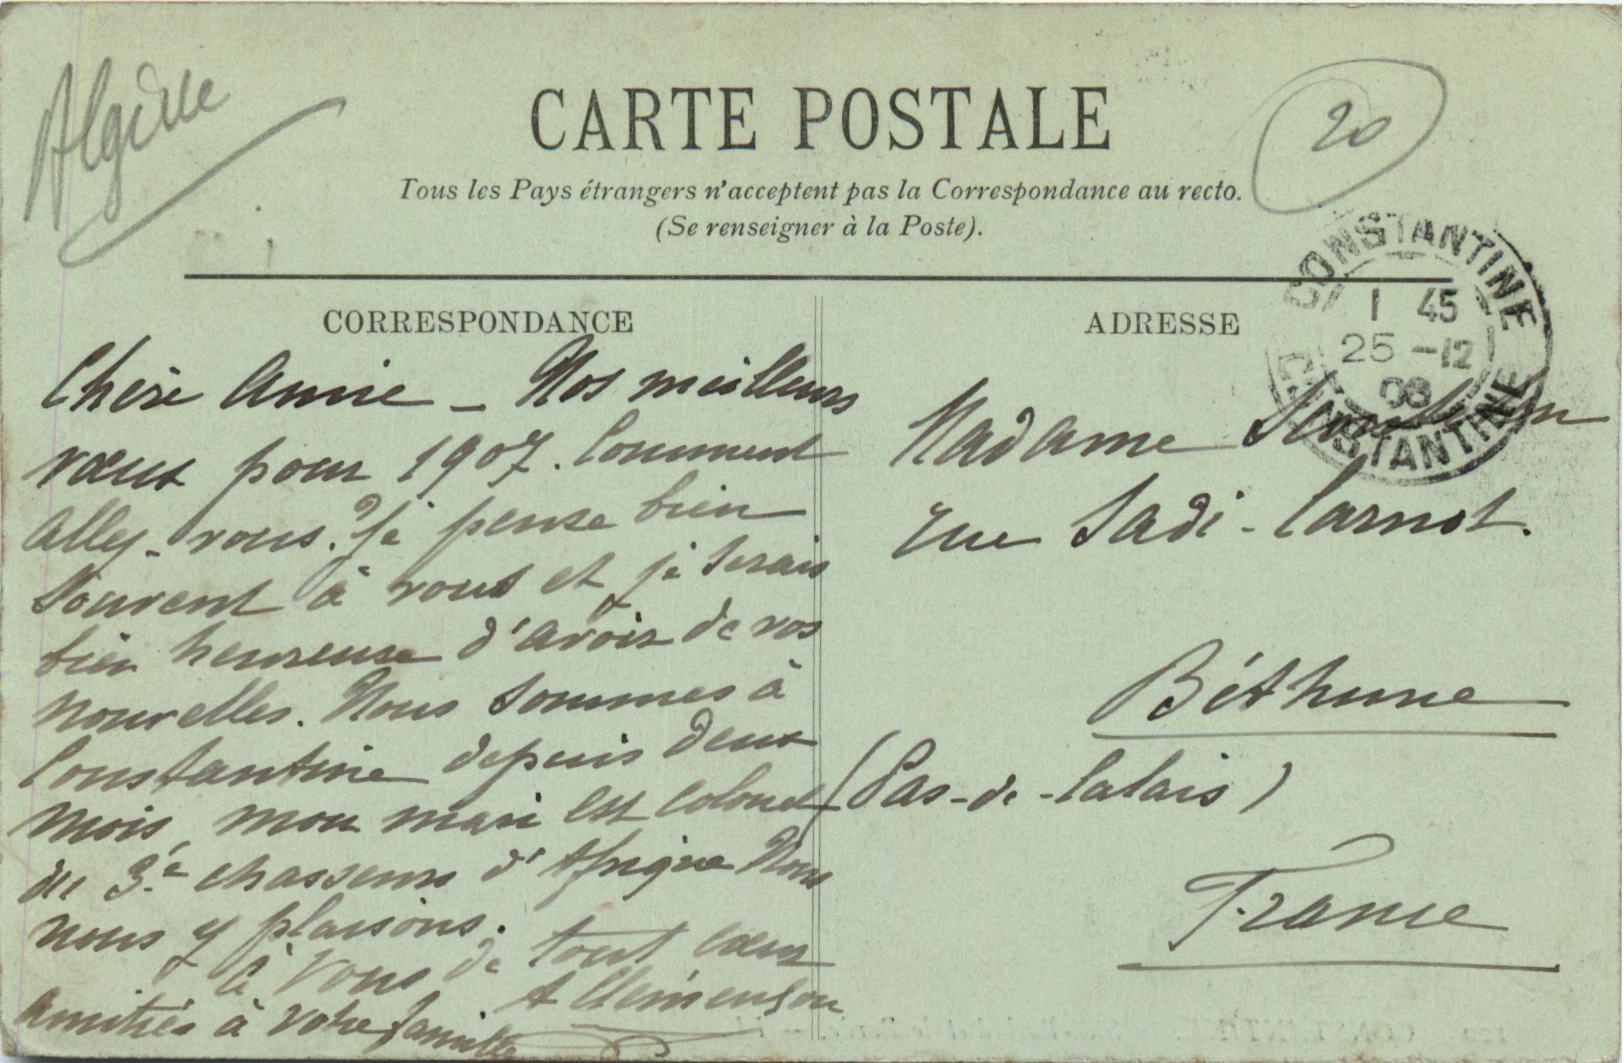 Algérie
CARTE POSTALE
20
Tous les Pays étrangers n'acceptent pas la Correspondance au recto.
(Se renseigner à la Poste).
CONSTANTINE
1 45
25 -12
CONSTANTINE
CORRESPONDANCE
Chère Amie _ Nos meilleurs
vœux pour 1907. Comment
allez-vous. Je pense bien
souvent à vous et je serais
bien heureuse d'avoir de vos
nouvelles. Nous sommes à
Constantine depuis deux
mois, mon mari est colonel
du 3e chasseurs d'Afrique Nous
nous y plaisons.
à vous de tout cœur
amitiés à votre famille
ADRESSE
Madame
rue Sadi-Carnot.
Béthune
(Pas-de-Calais)
France